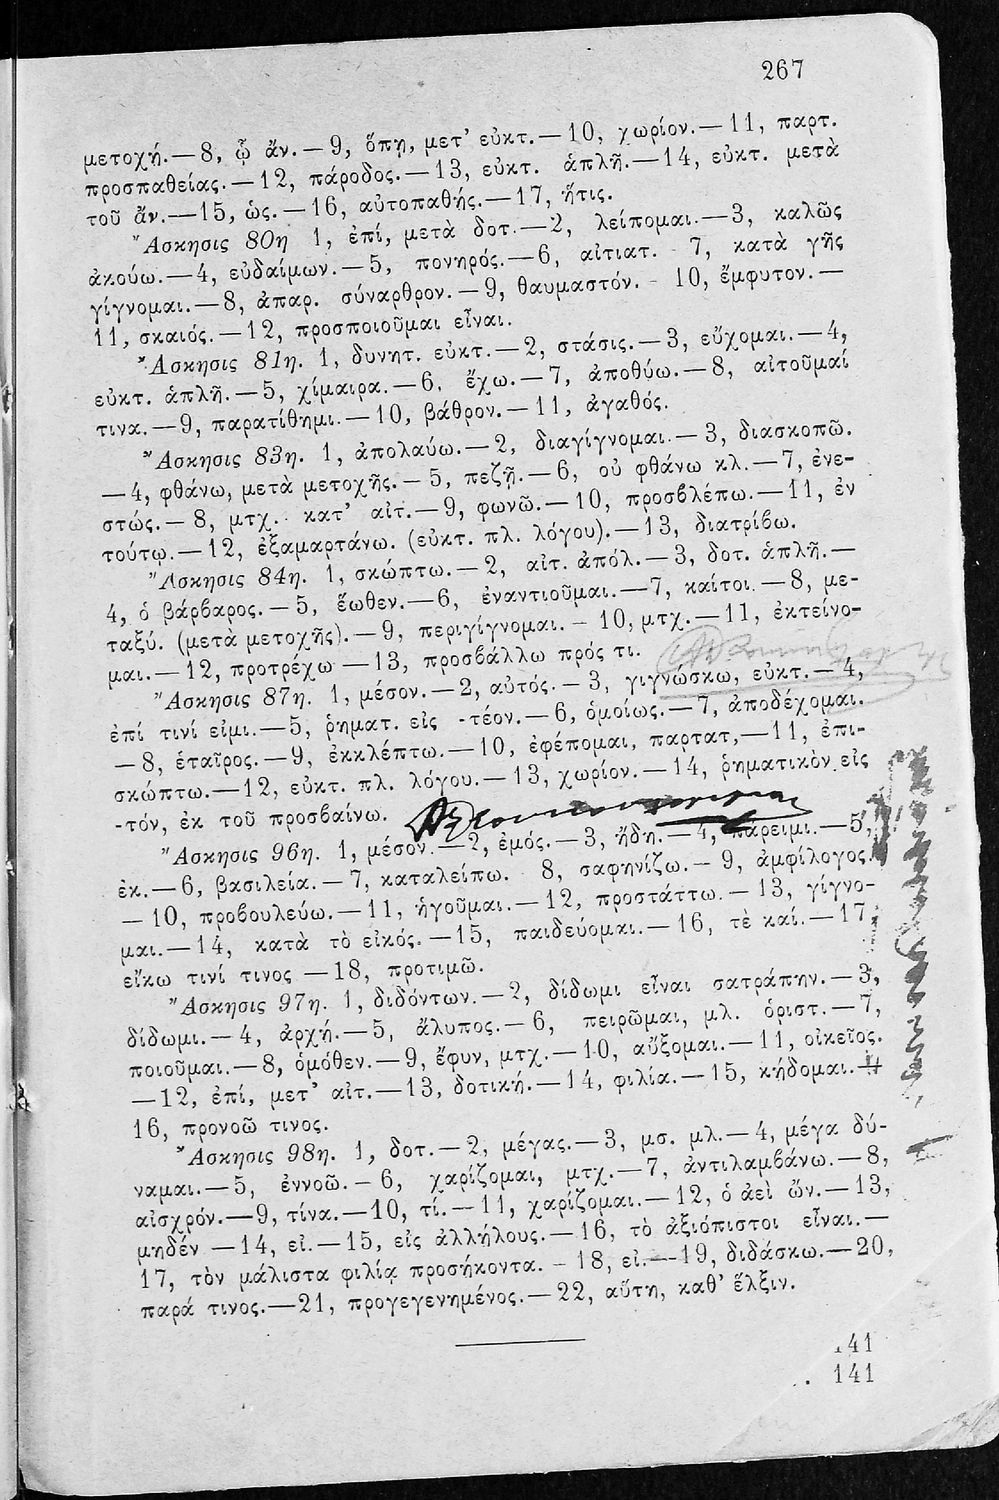 267
μετοχή.—8, ᾧ ἄν.—9, ὅπῃ, μετ' εὐκτ.—10, χωρίον.—11, παρτ.
προσπαθείας.—12, πάροδος.—13, εὐκτ. ἁπλῆ.—14, εὐκτ. μετὰ
τοῦ ἄν.—15, ὡς.—16, αὐτοπαθής.—17, ἥτις.
Ἄσκησις 80η 1, ἐπί, μετὰ δοτ.—2, λείπομαι.—3, καλῶς
ἀκούω.—4, εὐδαίμων.—5, πονηρός.—6, αἰτιατ. - 7, κατὰ γῆς
γίγνομαι.—8, ἀπαρ. σύναρθρον.—9, θαυμαστόν. - 10, ἔμφυτον.—
11, σκαιός.—12, προσποιοῦμαι εἶναι.
Ἄσκησις 81η. 1, δυνητ. εὐκτ.—2, στάσις.—3, εὔχομαι.—4,
εὐκτ. ἁπλῆ.—5, χίμαιρα.—6. ἔχω.—7, ἀποθύω.—8, αἰτοῦμαί
τινα.—9, παρατίθημι.—10, βάθρον.—11, ἀγαθός.
Ἄσκησις 83η. 1, ἀπολαύω.—2, διαγίγνομαι.—3, διασκοπῶ.
—4, φθάνω, μετὰ μετοχῆς.—5, πεζῇ.—6, οὐ φθάνω κλ.—7, ἐνε-
στώς.—8, μτχ. κατ' αἰτ.—9, φωνῶ.—10, προσβλέπω.—11, ἐν
τούτῳ.—12, ἐξαμαρτάνω. (εὐκτ. πλ. λόγου).—13, διατρίβω.
Ἄσκησις 84η. 1, σκώπτω.—2, αἰτ. ἀπόλ.—3, δοτ. ἁπλῆ.—
4, ὁ βάρβαρος.—5, ἕωθεν.—6, ἐναντιοῦμαι.—7, καίτοι.—8, με-
ταξύ. (μετὰ μετοχῆς).—9, περιγίγνομαι.—10, μτχ.—11, ἐκτείνο-
μαι.—12, προτρέχω—13, προσβάλλω πρός τι.
Ἄσκησις 87η. 1, μέσον.—2, αὐτός.—3, γιγνώσκω, εὐκτ.—4,
ἐπί τινί εἰμι.—5, ῥηματ. εἰς -τέον.—6, ὁμοίως.—7, ἀποδέχομαι.
—8, ἑταῖρος.—9, ἐκκλέπτω.—10, ἐφέπομαι, παρτατ,—11, ἐπι-
σκώπτω.—12, εὐκτ. πλ. λόγου.—13, χωρίον.—14, ῥηματικὸν εἰς
-τόν, ἐκ τοῦ προσβαίνω.
Ἄσκησις 96η. 1, μέσον.—2, ἐμός.—3, ἤδη.—4, πάρειμι.—5,
ἐκ.—6, βασιλεία.—7, καταλείπω. 8, σαφηνίζω.—9, ἀμφίλογος.
—10, προβουλεύω.—11, ἡγοῦμαι.—12, προστάττω.—13, γίγνο-
μαι.—14, κατὰ τὸ εἰκός.—15, παιδεύομαι.—16, τὲ καί.—17,
εἴκω τινί τινος —18, προτιμῶ.
Ἄσκησις 97η. 1, διδόντων.—2, δίδωμι εἶναι σατράπην.—3,
δίδωμι.—4, ἀρχή.—5, ἄλυπος.—6, πειρῶμαι, μλ. ὁριστ.—7,
ποιοῦμαι.—8, ὁμόθεν.—9, ἔφυν, μτχ.—10, αὔξομαι.—11, οἰκεῖος.
—12, ἐπί, μετ' αἰτ.—13, δοτική.—14, φιλία.—15, κήδομαι.—
16, προνοῶ τινος.
Ἄσκησις 98η. 1, δοτ.—2, μέγας.—3, μσ. μλ.—4, μέγα δύ-
ναμαι.—5, ἐννοῶ.—6, χαρίζομαι, μτχ.—7, ἀντιλαμβάνω.—8,
αἰσχρόν.—9, τίνα.—10, τί.—11, χαρίζομαι.—12, ὁ ἀεὶ ὤν.—13,
μηδέν —14, εἰ.—15, εἰς ἀλλήλους.—16, τὸ ἀξιόπιστοι εἶναι.—
17, τὸν μάλιστα φιλίᾳ προσήκοντα.—18, εἰ.—19, διδάσκω.—20,
παρά τινος.—21, προγεγενημένος.—22, αὕτη, καθ' ἕλξιν.
141
141